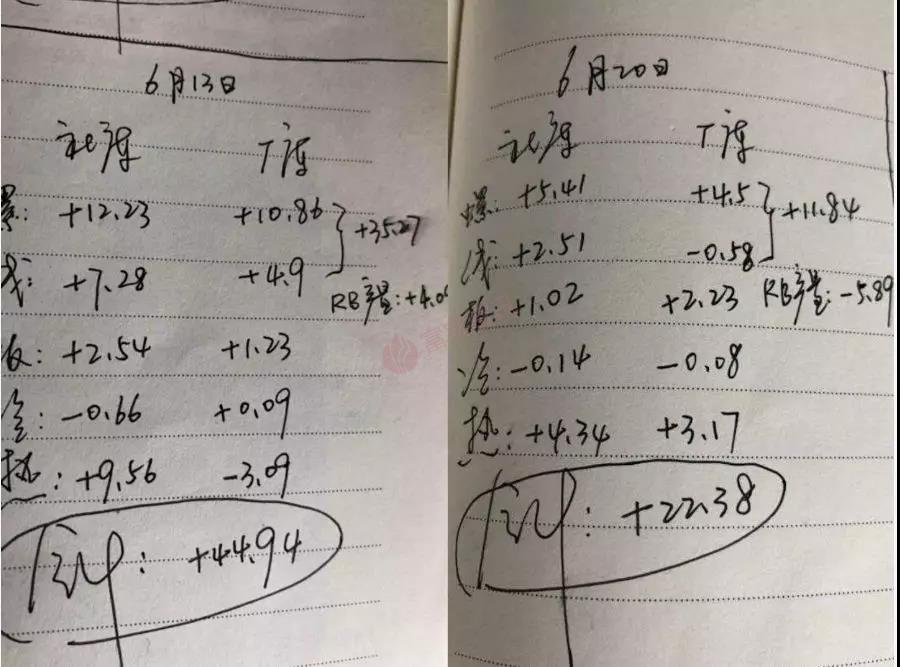 6月13日
社库 厂库
螺: +12.23 +10.86
+35.27
线: +7.28 +4.9
RB产量: +4.0
板: +2.54 +1.23
冷: -0.66 +0.09
热: +9.56 -3.09
: +44.94
6月20日
社库 厂库
螺: +5.41 +4.5
+11.84
线: +2.51 -0.58
RB产量: -5.89
板: +1.02 +2.23
冷: -0.14 -0.08
热: +4.34 +3.17
: +22.38